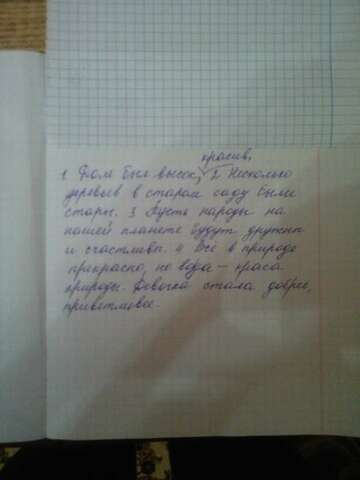 красив.
1 Дом был высок, 2 Несколько
деревьев в старом саду были
стары. 3 Пусть народы на
нашей планете будут дружны
и счастливы. 4 Всё в природе
прекрасно, но вода – краса
природы. Девочка стала добрее,
приветливее.